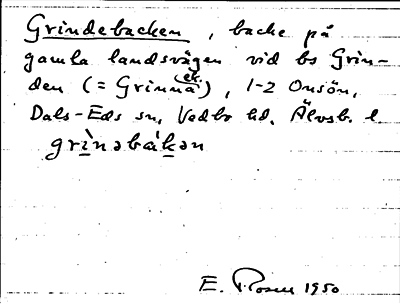 Grindebacken, backe på
gamla landsvägen vid bs Grin-
den (= Grinnä ek.), 1-2 Onsön,
Dals-Eds sn, Vedbo hd, Älvsb. l.
grìnəbákən
E. 1950